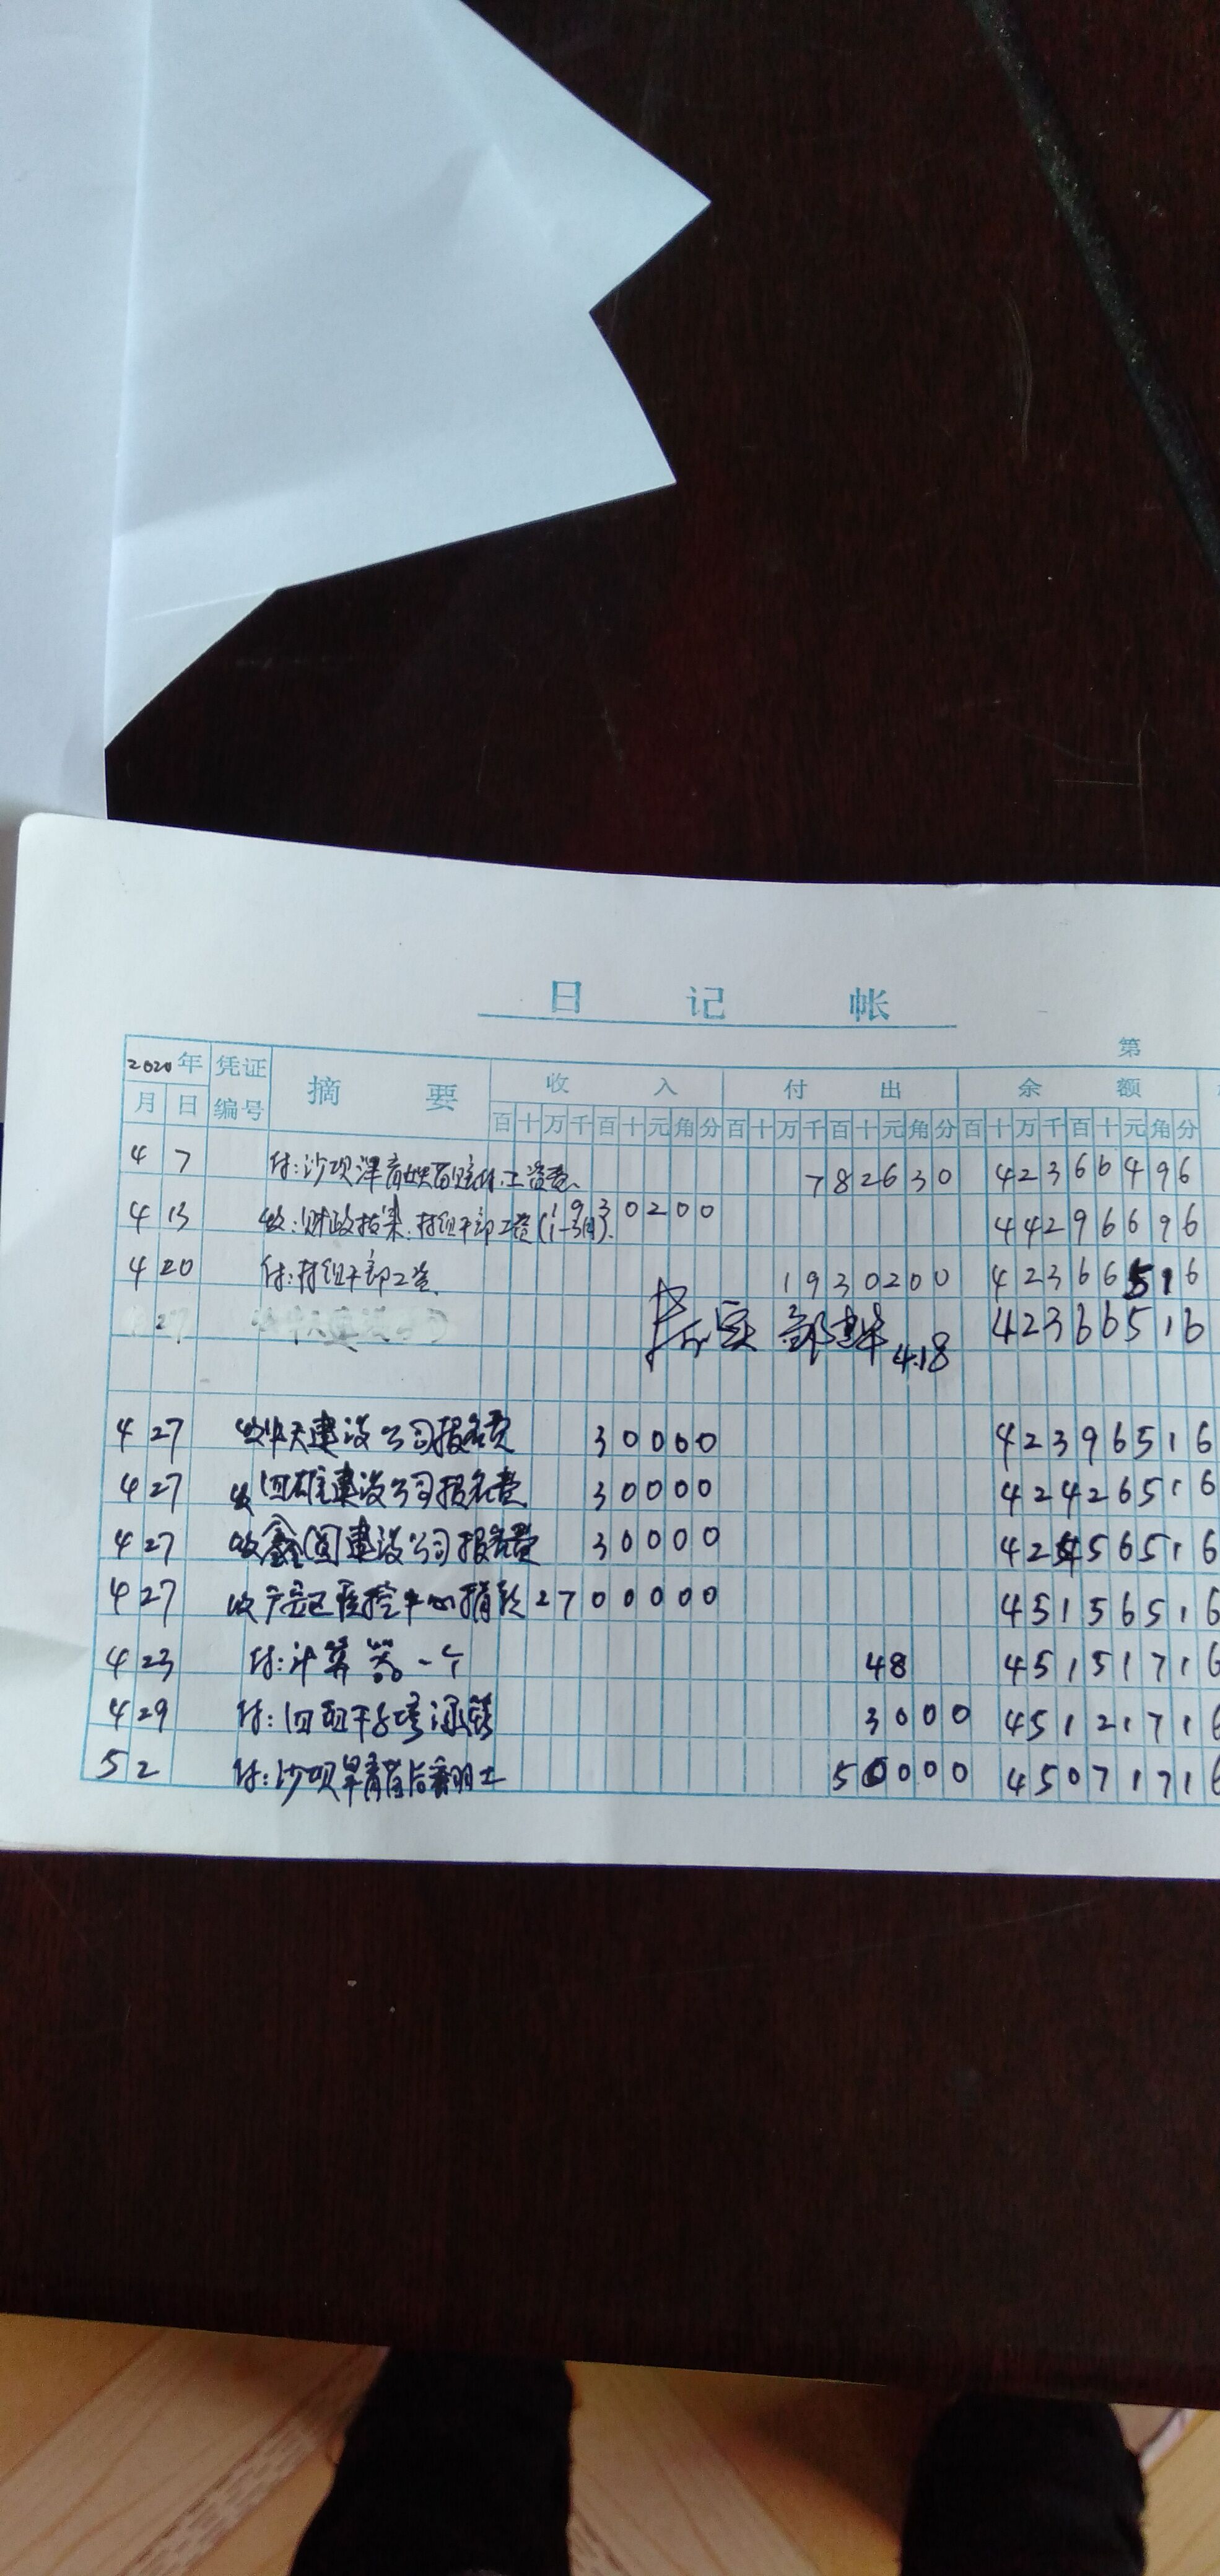 日 记 帐
第
2020年 凭证 摘 要 收 入 付 出 余 额
月 日 编号 百十万千百十元角分 百十万千百十元角分 百十万千百十元角分
4 7 付:沙坝 工资费 782630 42366496
4 13 收:财政拨来:村组干部工资(1-3月). 1930200 44296696
4 20 付:村组干部工资 1930200 42366516
27 42366516
4.18
4 27 收华天建设公司报名费 30000 42396516
4 27 收四雄建设公司报名费 30000 42426516
4 27 收鑫 建设公司报名费 30000 42456516
4 27 收广元区疾控中心捐款 2700000 45156516
4 23 付:计算器一个 48 45151716
4 29 付:四组干 涵管 3000 45121716
5 2 付:沙坝 后翻土 50000 45071716